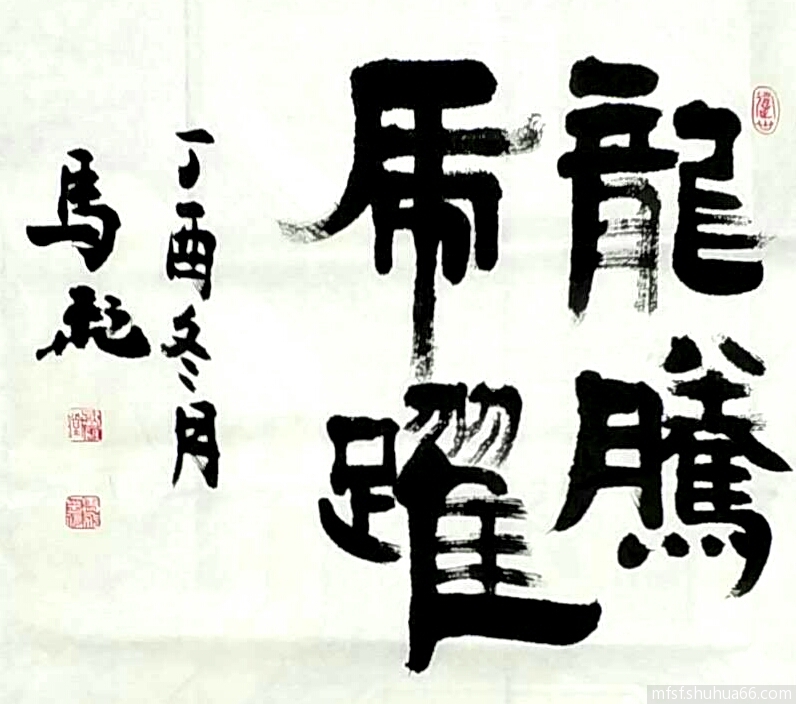 龍騰
虎躍
丁酉冬月
馬龍
mfsf.shuhua66.com